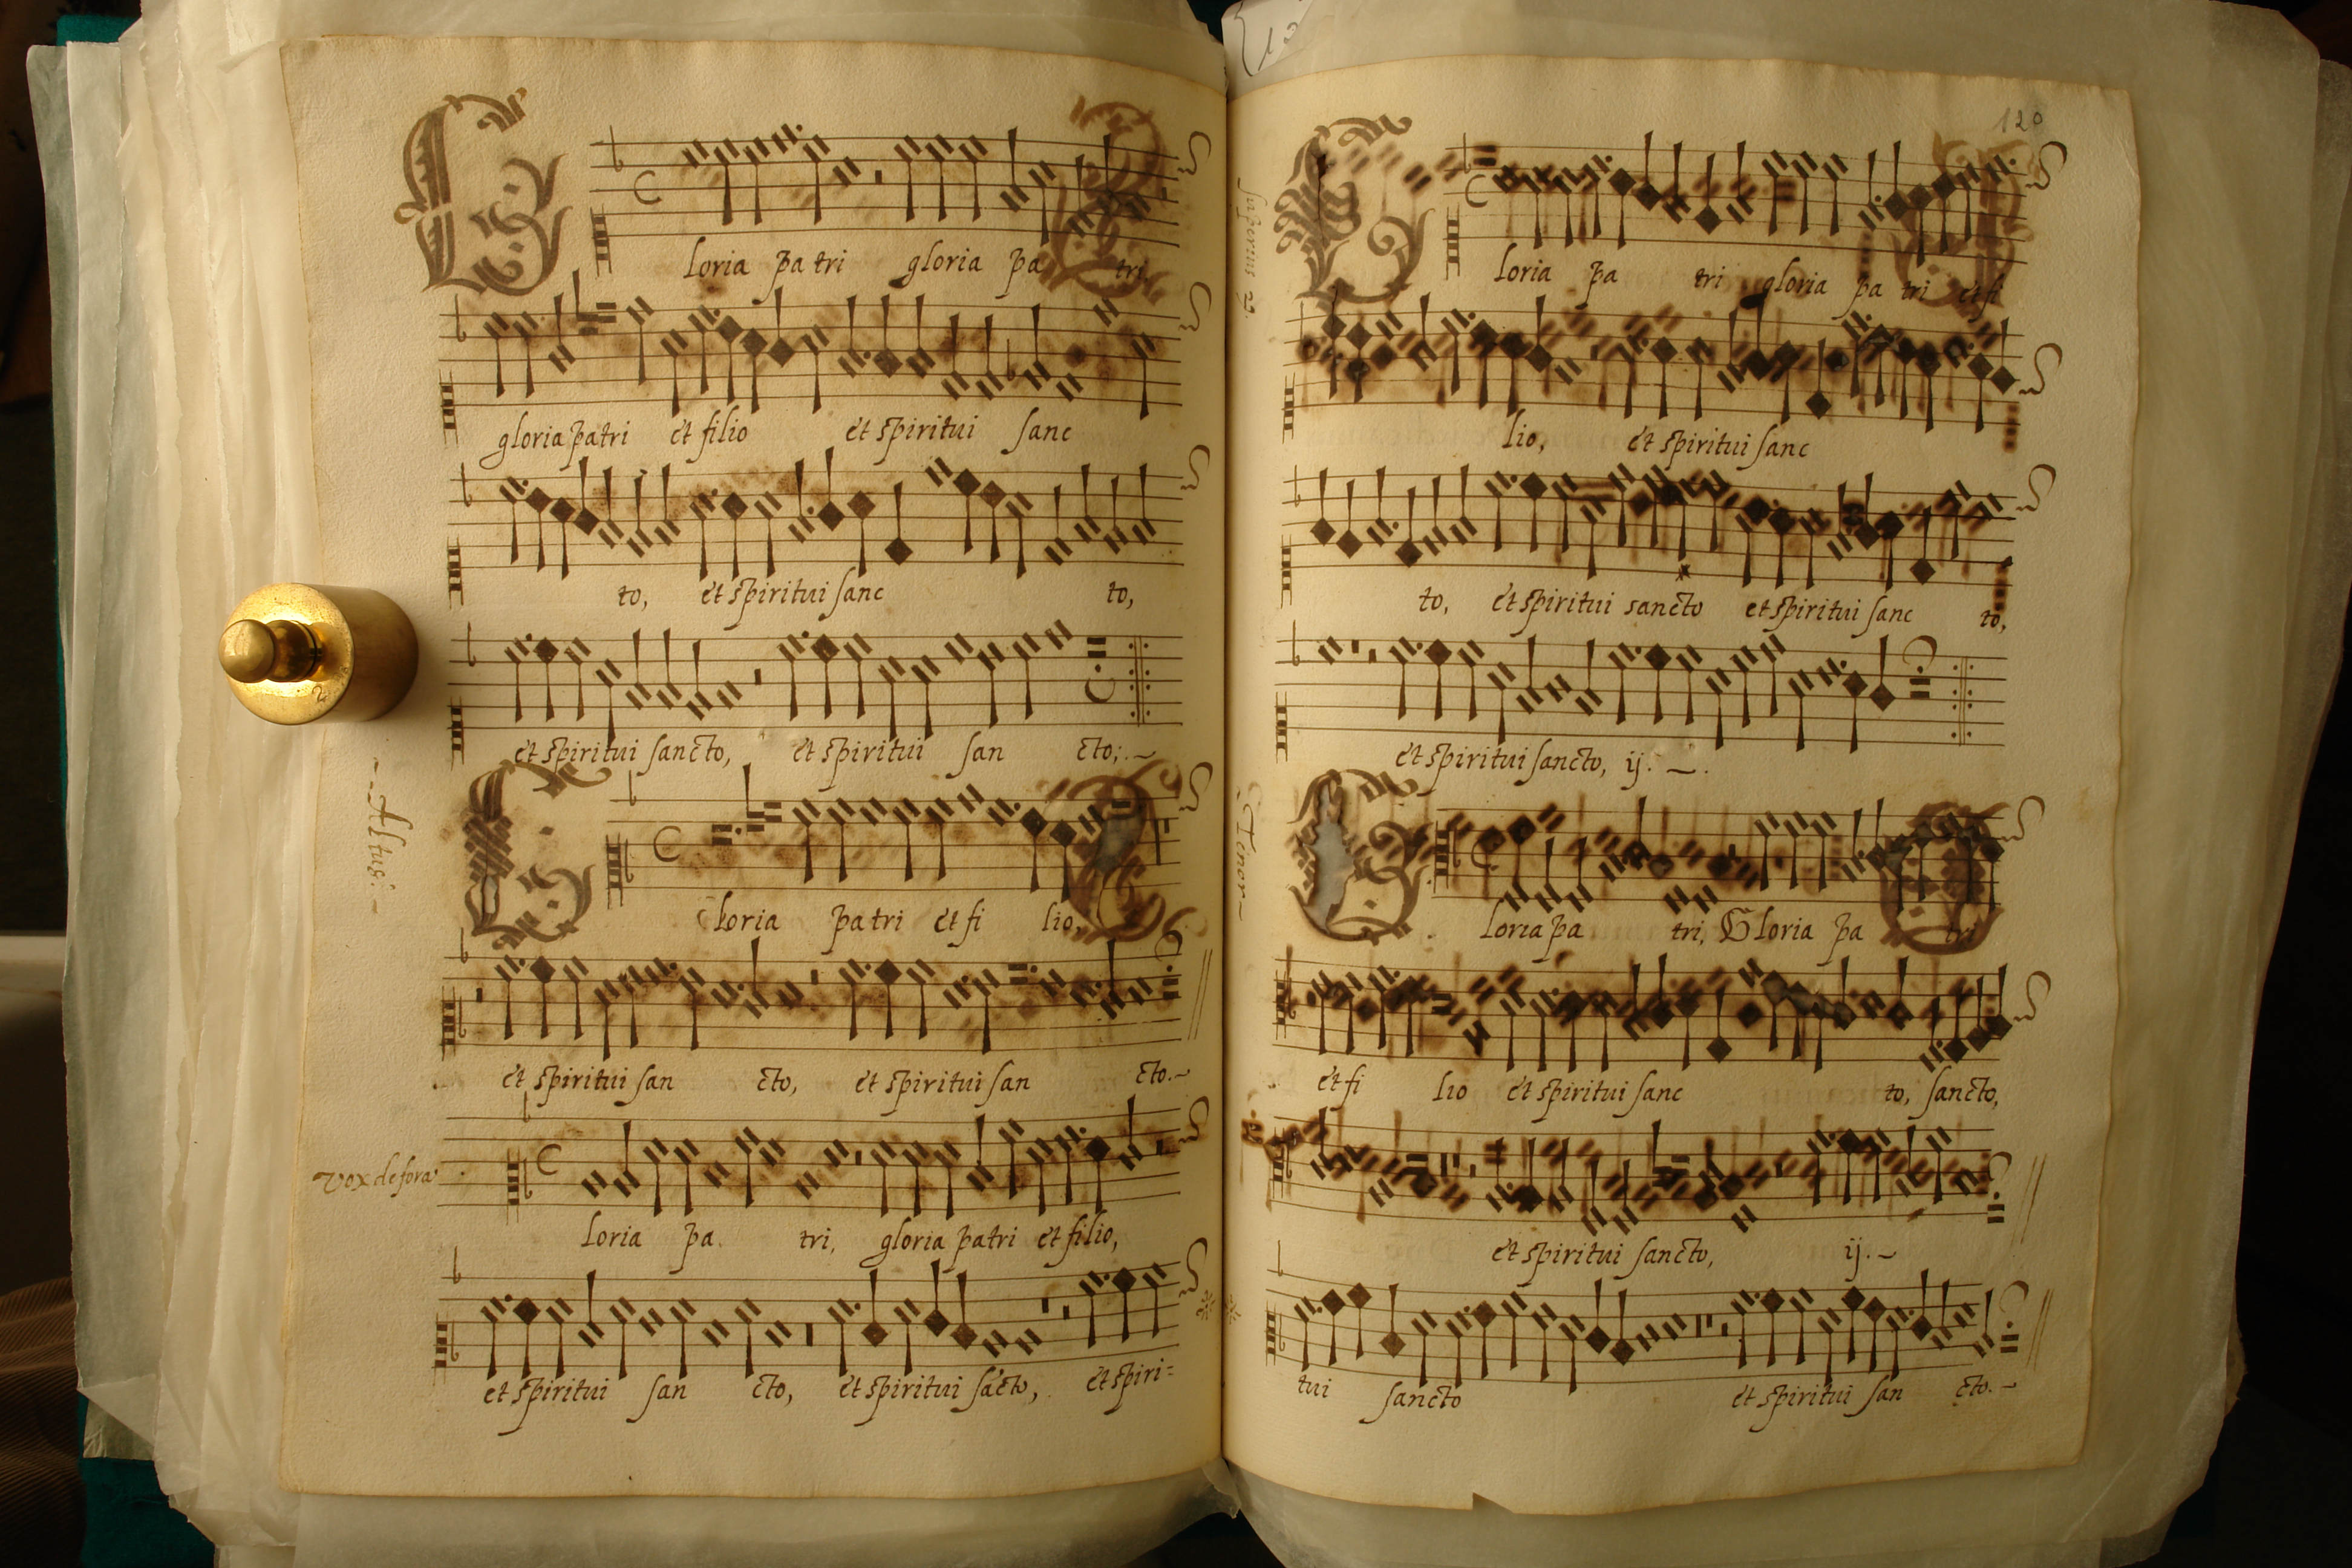 loria pa tri gloria pa tri
gloria patri et filio et spiritui sanc
to, et spiritui sanc to,
et spiritui sancto, et spiritui san cto;
Altus
Gloria patri et fi lio,
et spiritui san cto, et spiritui san cto.
vox de fora
loria pa tri, gloria patri et filio,
et spiritui san cto, et spiritui sãcto, et spiri=
120
Superius 2
Gloria pa tri gloria pa tri et fi
lio, et spiritui sanc
to, et spiritui sancto et spiritui sanc to,
et spiritui sancto, ij.
Tenor
loria pa tri, Gloria pa tri
et fi lio et spiritui sanc to, sancto,
et spiritui sancto, ij.
tui sancto et spiritui san cto.